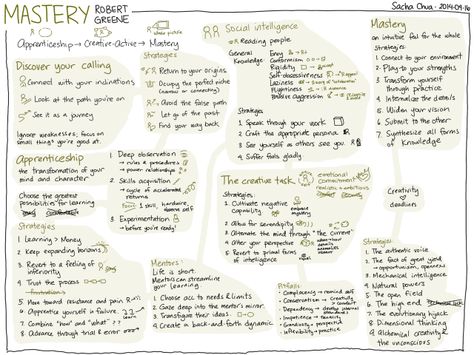 MASTERY ROBERT GREENE
Sacha Chua · 2014-09-16
Apprenticeship → Creative-Active → Mastery
Discover your calling
Connect with your inclinations
Look at the path you're on
See it as a journey
Ignore weaknesses; focus on
small things you're good at.
Strategies
Return to your origins
Occupy the perfect niche
Avoid the false path
Let go of the past
Find your way back
Social intelligence
Reading people
General Knowledge
Envy
Conformism
Rigidity
Self-obsessiveness
Laziness
Flightiness
Passive aggression
Strategies
1. Speak through your work
2. Craft the appropriate persona
3. See yourself as others see you
4. Suffer fools gladly
Mastery
an intuitive feel for the whole
Strategies
1. Connect to your environment
2. Play to your strengths
3. Transform yourself through practice
4. Internalize the details
5. Widen your vision
6. Submit to the other
7. Synthesize all forms of knowledge
Apprenticeship
the transformation of your mind and character
Choose the greatest possibilities for learning
1. Deep observation
→ rules & procedures
→ power relationships
2. Skills acquisition
→ cycle of accelerated returns
3. Experimentation
→ before you're ready!
Strategies
1. Learning > Money
2. Keep expanding horizons
3. Revert to a feeling of inferiority
4. Trust the process
5. Move toward resistance and pain
6. Apprentice yourself in failure
7. Combine "how" and "what"
8. Advance through trial & error
Mentors:
Life is short.
Mentors can streamline
your learning.
1. Choose acc. to needs &
2. Gaze deep into the mentor's mirror
3. Transfigure their ideas
4. Create a back-and-forth dynamic
The creative task
emotional commitment
realistic + ambitious
Strategies:
1. Cultivate negative capability
2. Allow for serendipity
3. Alternate the mind through "The current"
4. Alter your perspective
5. Revert to primal forms of intelligence
Creativity
deadlines
Pitfalls:
- Complacency
- Conservatism
- Dependency
- Impatience
- Grandiosity
- Inflexibility
Strategies:
1. The authentic voice
2. The fact of great yield
3. Mechanical intelligence
4. Natural powers
5. The open field
6. The high end
7. The evolutionary hijack
8. Dimensional thinking
9. Alchemical creativity